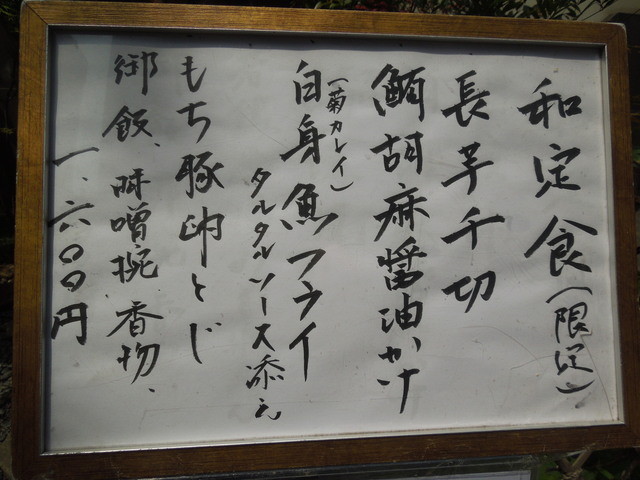 和定食(限定)
長芋千切
鯛胡麻醤油かけ
(菊カレイ)
白身魚フライ
タルタルソース添え
もち豚卵とじ
御飯、味噌椀、香物、
一、六〇〇円